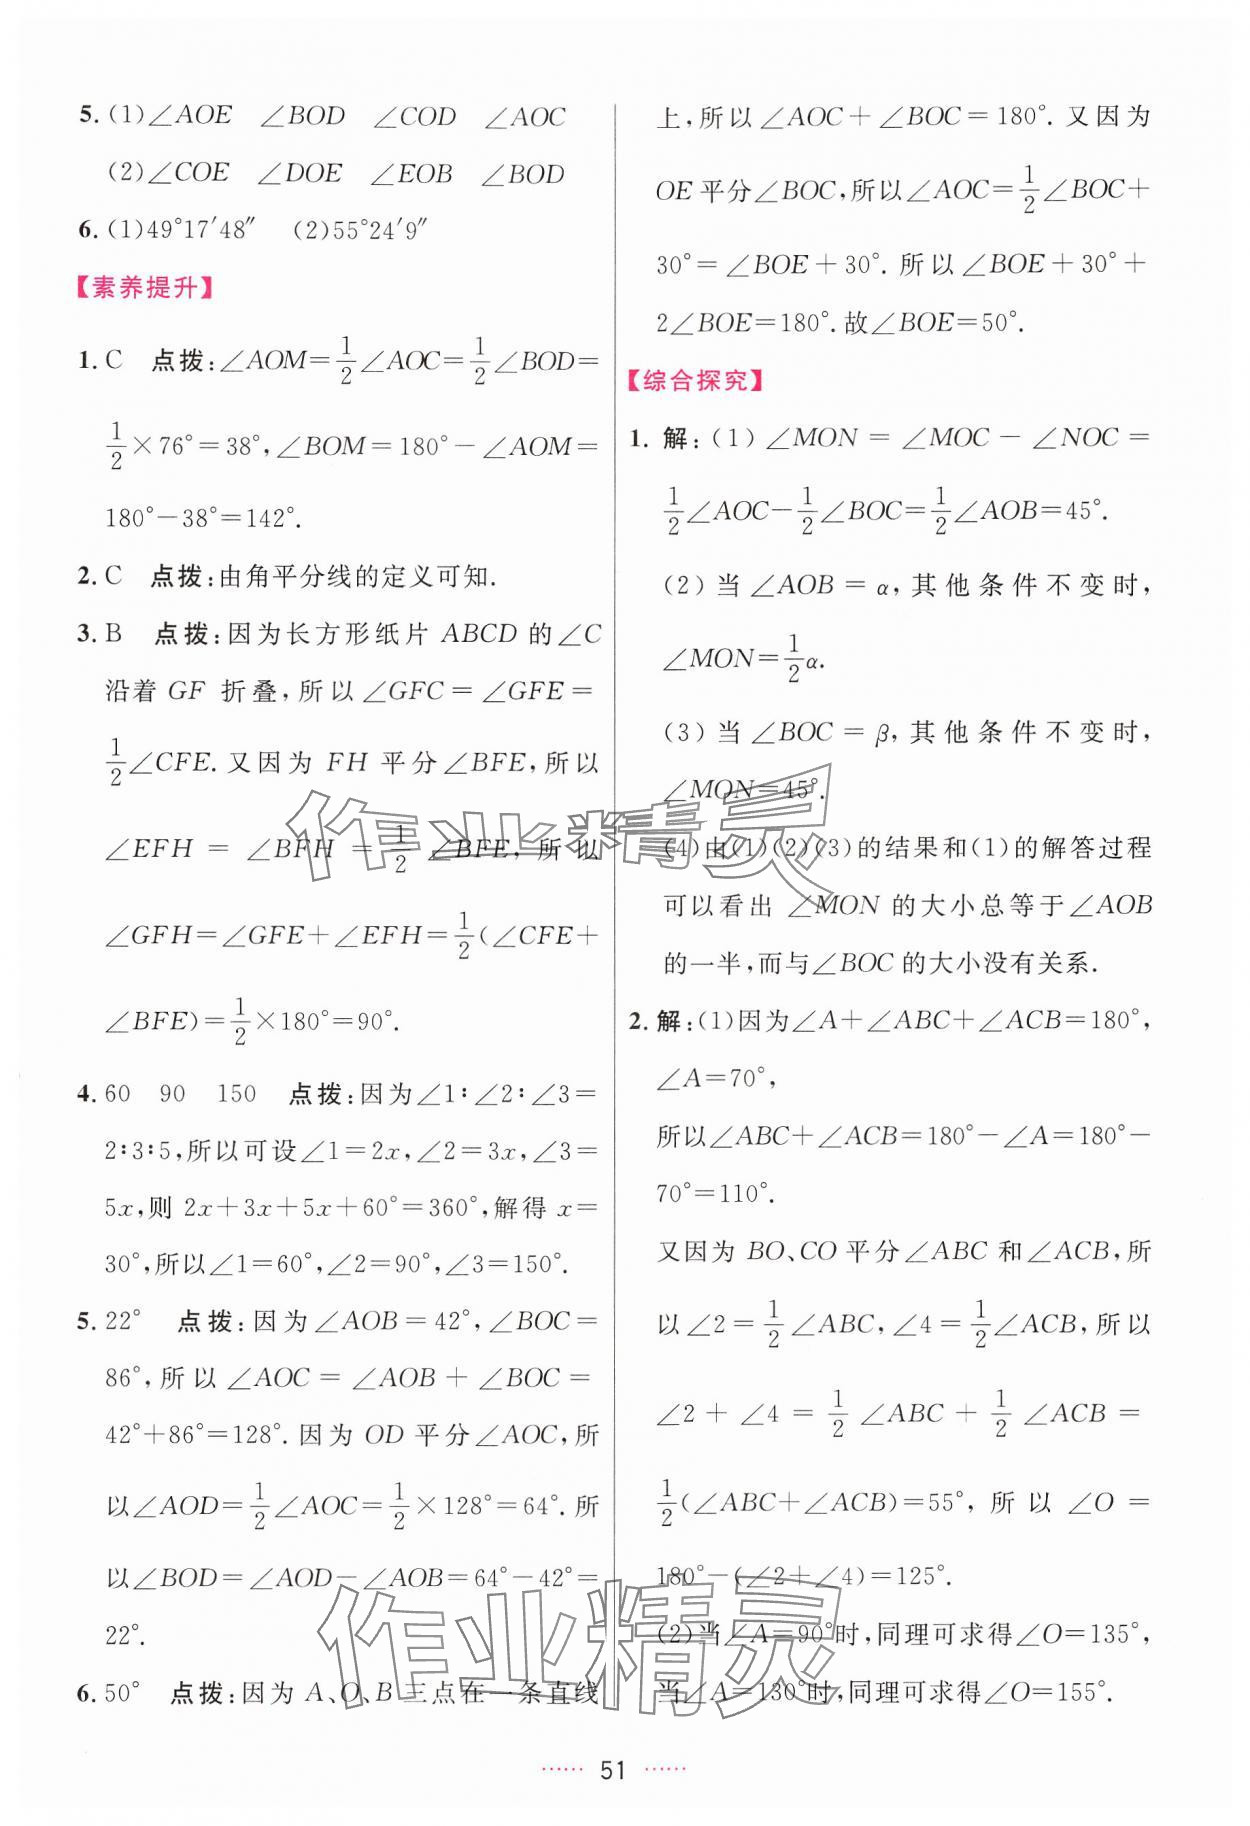 5. (1)∠AOE ∠BOD ∠COD ∠AOC
(2)∠COE ∠DOE ∠EOB ∠BOD
6. (1)49°17′48″ (2)55°24′9″
【素养提升】
1. C 点拨:∠AOM=1/2∠AOC=1/2∠BOD=
1/2×76°=38°,∠BOM=180°-∠AOM=
180°-38°=142°.
2. C 点拨:由角平分线的定义可知.
3. B 点拨:因为长方形纸片 ABCD 的∠C
沿着 GF 折叠,所以∠GFC=∠GFE=
1/2∠CFE.又因为 FH 平分∠BFE,所以
∠EFH=∠BFH=1/2∠BFE,所以
∠GFH=∠GFE+∠EFH=1/2(∠CFE+
∠BFE)=1/2×180°=90°.
4. 60 90 150 点拨:因为∠1∶∠2∶∠3=
2∶3∶5,所以可设∠1=2x,∠2=3x,∠3=
5x,则 2x+3x+5x+60°=360°,解得 x=
30°,所以∠1=60°,∠2=90°,∠3=150°.
5. 22° 点拨:因为∠AOB=42°,∠BOC=
86°,所以∠AOC=∠AOB+∠BOC=
42°+86°=128°.因为 OD 平分∠AOC,所
以∠AOD=1/2∠AOC=1/2×128°=64°.所
以∠BOD=∠AOD-∠AOB=64°-42°=
22°.
6. 50° 点拨:因为 A、O、B 三点在一条直线
上,所以∠AOC+∠BOC=180°.又因为
OE 平分∠BOC,所以∠AOC=1/2∠BOC+
30°=∠BOE+30°.所以∠BOE+30°+
2∠BOE=180°.故∠BOE=50°.
【综合探究】
1. 解:(1)∠MON=∠MOC-∠NOC=
1/2∠AOC-1/2∠BOC=1/2∠AOB=45°.
(2)当∠AOB=α,其他条件不变时,
∠MON=1/2α.
(3)当∠BOC=β,其他条件不变时,
∠MON=45°.
(4)由(1)(2)(3)的结果和(1)的解答过程
可以看出∠MON 的大小总等于∠AOB
的一半,而与∠BOC 的大小没有关系.
2. 解:(1)因为∠A+∠ABC+∠ACB=180°,
∠A=70°,
所以∠ABC+∠ACB=180°-∠A=180°-
70°=110°.
又因为 BO、CO 平分∠ABC 和∠ACB,所
以∠2=1/2∠ABC,∠4=1/2∠ACB,所以
∠2+∠4=1/2∠ABC+1/2∠ACB=
1/2(∠ABC+∠ACB)=55°,所以∠O=
180°-(∠2+∠4)=125°.
(2)当∠A=90°时,同理可求得∠O=135°,
当∠A=130°时,同理可求得∠O=155°.
作业精灵
作业精灵
······ 51 ······